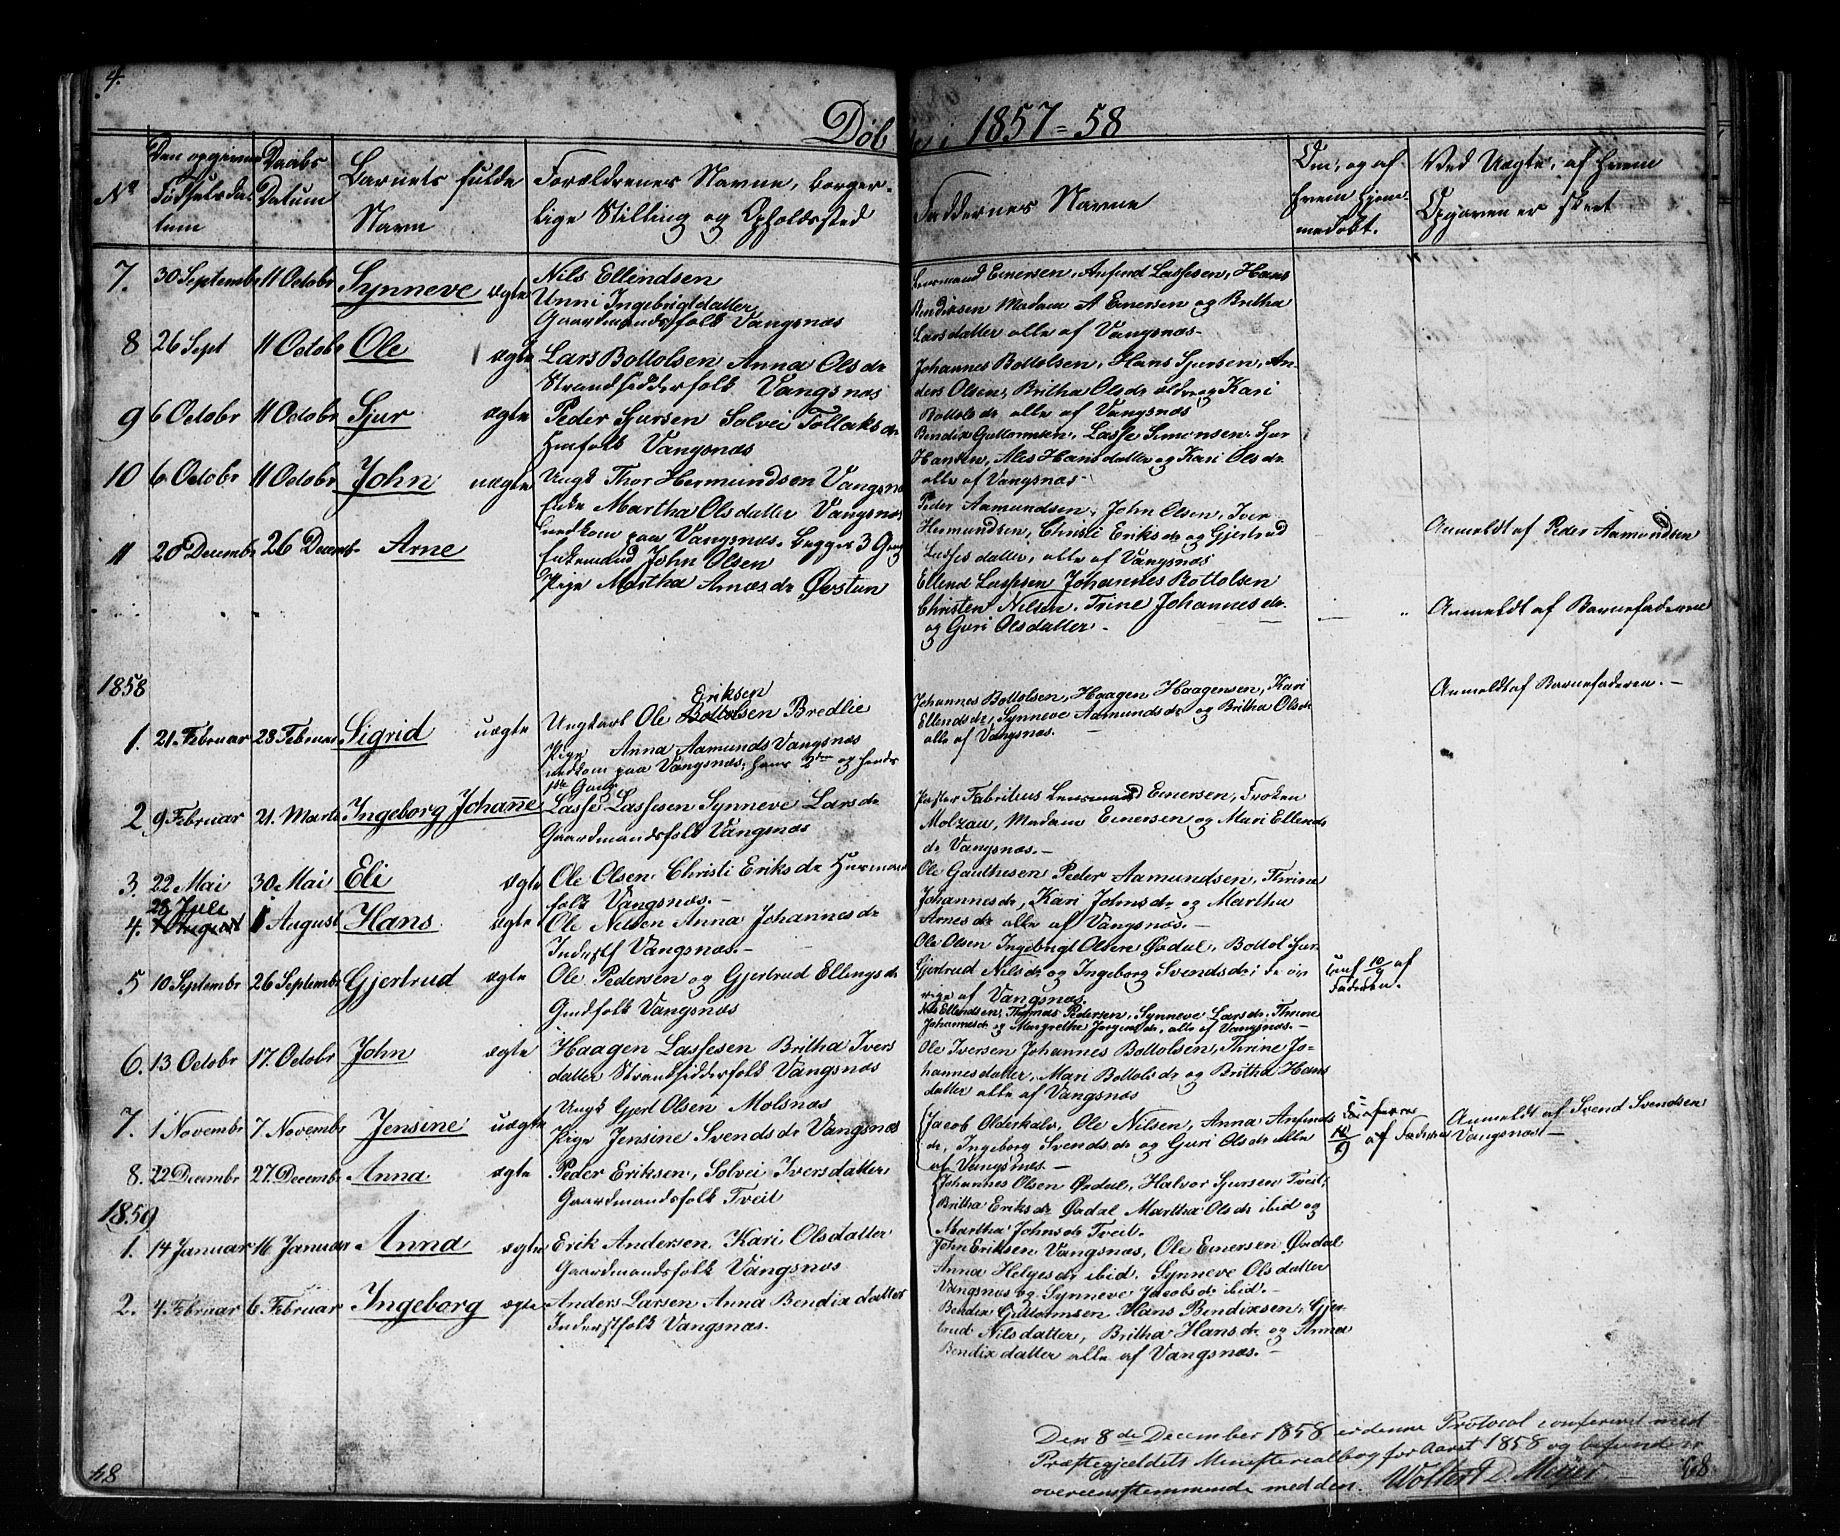 4.
Døbte i 1857=58
No
Den opgivne Fødselsdatum
Daabs Datum
Barnets fulde Navn
Forældrenes Navne, borgerlige Stilling og Opholdssted
Faddernes Navne
Om, og af hvem hjemmedøbt.
Ved Uægte, af hvem Opgaven er skeet
7. 30 Septembr 11 Octobr Synneve ægte Nils Ellendsen
Unni Ingebrigtdatter
Gaardmandsfolk Vangsnæs
Lensmand Emersen, Anfind Lassesen, Hans
Bendixsen Madam A Emersen og Britha
Larsdatter alle af Vangsnæs.
8 26 Sept 11 Octobr Ole ægte Lars Bottolsen Anna Olsdr
Strandsidderfolk Vangsnæs
Johannes Bottolsen, Hans Sjursen, An-
ders Olsen, Britha Olsdr ældre og Kari
Bottolsdr alle af Vangsnæs
9 6 Octobr 11 Octobr Sjur ægte Peder Sjursen Solvei Tollaksdr
Huusfolk Vangsnæs
Bendix Guttormsen, Lasse Simonsen, Sjur
Hansen, Alis Hansdatter og Kari Olsdr
alle af Vangsnæs
10 6 Octobr 11 Octobr John uægte Ungk Thor Hermundsen Vangsnæs
Enke Martha Olsdatter Vangsnæs
Lendkom paa Vangsnæs. Begges 3 Gang
Peder Aamundsen, John Olsen, Iver
Hermundsen, Christi Eriksdr og Gjertrud
Lassesdatter, alle af Vangsnæs
Anmeldt af Peder Aamundsen
11 20 Decembr 26 Decembr Arne
Enkemand John Olsen
Pige Martha Arnesdr Øvstun
Ellend Lassesen Johannes Bottolsen
Christen Nilsen, Trine Johannesdr
og Guri Olsdatter
Anmeldt af Barnefaderen
1858
1. 21. Februar 28 Februar Sigrid uægte
Eriksen
Ungkarl Ole Bottolsen Bredlie
Pige Anna Aamunds Vangsnæs
nedkom paa Vangsnæs, hans 2den og hendes
1ste Gang
Johannes Bottolsen, Haagen Haagensen, Kari
Ellendsdr, Synneve Aamundsdr og Britha Olsdr
alle af Vangsnæs.
Anmeldt af Barnefaderen.
2 9 Februar 21. Marts Ingeborg Johanne Lasse Lassesen Synneve Larsdr
Gaardmandsfolk Vangsnæs
Pastor Fabritius Lensmand Emersen, Frøken
Molzau, Madam Emersen og Mari Ellends
dr Vangsnæs.
3. 22 Mai 30 Mai Eli ægte Ole Olsen Christi Eriksdr Huusmands
folk Vangsnæs.
Ole Gauthesen Peder Aamundsen, Thrine
Johannesdr, Kari Johnsdr og Martha
Arnesdr alle af Vangsnæs.
28 Juli
4. 1 August 1 August Hans ægte Ole Nilsen Anna Johannesdr
Inderstf Vangsnæs.
Ole Olsen Ingebrigt Olsen Ørdal, Bottol Sjur-
5 10 Septembr 26 Septembr Gjertrud ægte Ole Pedersen og Gjertrud Ellingsdr
Huusfolk Vangsnæs
Gjertrud Nilsdr og Ingeborg Svendsdr, de øv-
rige af Vangsnæs.
Nils Ellendsen, Thomas Pedersen, Synneve Larsdr, Thrine
Johannesdr og Margrethe Jørgensdr, alle af Vangsnæs.
10/9 af Faderen.
6. 13 Octobr 17. Octobr John ægte Haagen Lassesen Britha Ivers
datter Strandsidderfolk Vangsnæs
Ole Iversen Johannes Bottolsen, Thrine Jo-
hannesdatter, Mari Bottolsdr og Britha Hans
datter alle af Vangsnæs
7. 1 Novembr 7. Novembr Jensine uægte Ungk Gjert Olsen Molsnæs
Pige Jensine Svendsdr Vangsnæs
Jacob Olderkalv, Ole Nilsen, Anna Anfinds
dr, Ingeborg Svendsdr og Guri Olsdr alle
af Vangsnæs.
af Faderen
Anmeldt af Svend Svendsen
Vangsnæs
8. 22 Decembr 27. Decembr Anna ægte Peder Eriksen, Solvei Iversdatter
Gaardmandsfolk Tveit
Johannes Olsen Ørdal, Halvor Sjursen Tveit,
Britha Eriksdr Ørdal Martha Olsdr ibid og
Martha Johnsdr Tveit.
1859
1. 14 Januar 16 Januar Anna ægte Erik Andersen Kari Olsdatter
Gaardmandsfolk Vangsnæs
John Eriksen Vangsnæs, Ole Emersen Ørdal
Anna Helgesdr ibid. Synneve Olsdatter
Vangsnæs og Synneve Jacobsdr ibid.
2. 4. Februar 6. Februar Ingeborg ægte Anders Larsen Anna Bendixdatter
Inderstfolk Vangsnæs.
Bendix Guttormsen Hans Bendixsen, Gjer-
trud Nilsdatter, Britha Hansdr og Anna
Bendixdatter alle af Vangsnæs.
Den 8de December 1858 er denne Protocol confereret med
Præstegjældets Ministerialbog for Aaret 1858 og befunden
overeensstemmende med den. Woltert D Meyer